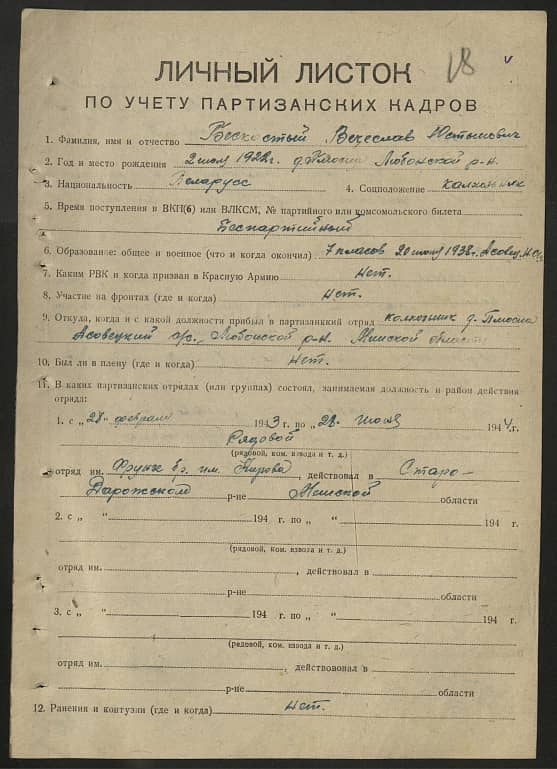 18
ЛИЧНЫЙ ЛИСТОК
ПО УЧЕТУ ПАРТИЗАНСКИХ КАДРОВ
1. Фамилия, имя и отчество Бескостый Вечеслав Устинович
2. Год и место рождения 2 мая 1922 г. д. Плюсна Любонской р-н.
3. Национальность Беларусс 4. Соцположение колхозник
5. Время поступления в ВКП(б) или ВЛКСМ, № партийного или комсомольского билета
Беспартийный
6. Образование: общее и военное (что и когда окончил) 7 класов 20 июня 1938 г. Асовец.
7. Каким РВК и когда призван в Красную Армию Нет.
8. Участие на фронтах (где и когда) Нет.
9. Откуда, когда и с какой должности прибыл в партизанккий отряд колхозник д. Плюсна
Асовецкий с/с. Любонской р-н. Минской области
10. Был ли в плену (где и когда) Нет.
11. В каких партизанских отрядах (или группах) состоял, занимаемая должность и район действия
отряда:
1. с „28“ февраля 1943 г. по „28“ июня 1944 г.
Рядовой
(рядовой, ком. взвода и т. д.)
отряд им. Фрунзе бр. им. Кирова, действовал в Старо-
Дарожском р-не Минской области
2. с „ “ 194 г. по „ “ 194 г.
(рядовой, ком. взвода и т. д.)
отряд им. , действовал в
р-не области
3. с „ “ 194 г. по „ “ 194 г.
(рядовой, ком. взвода и т. д.)
отряд им. , действововал в
р-не области
12. Ранения и контузии (где и когда) Нет.